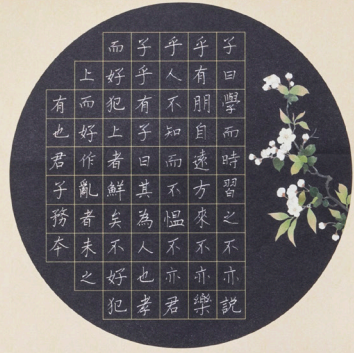 子曰學而時習之不亦說
乎有朋自遠方來不亦樂
乎人不知而不慍不亦君
子乎有子曰其為人也孝
而好犯上者鮮矣不好犯
上而好作亂者未之
有也君子務本